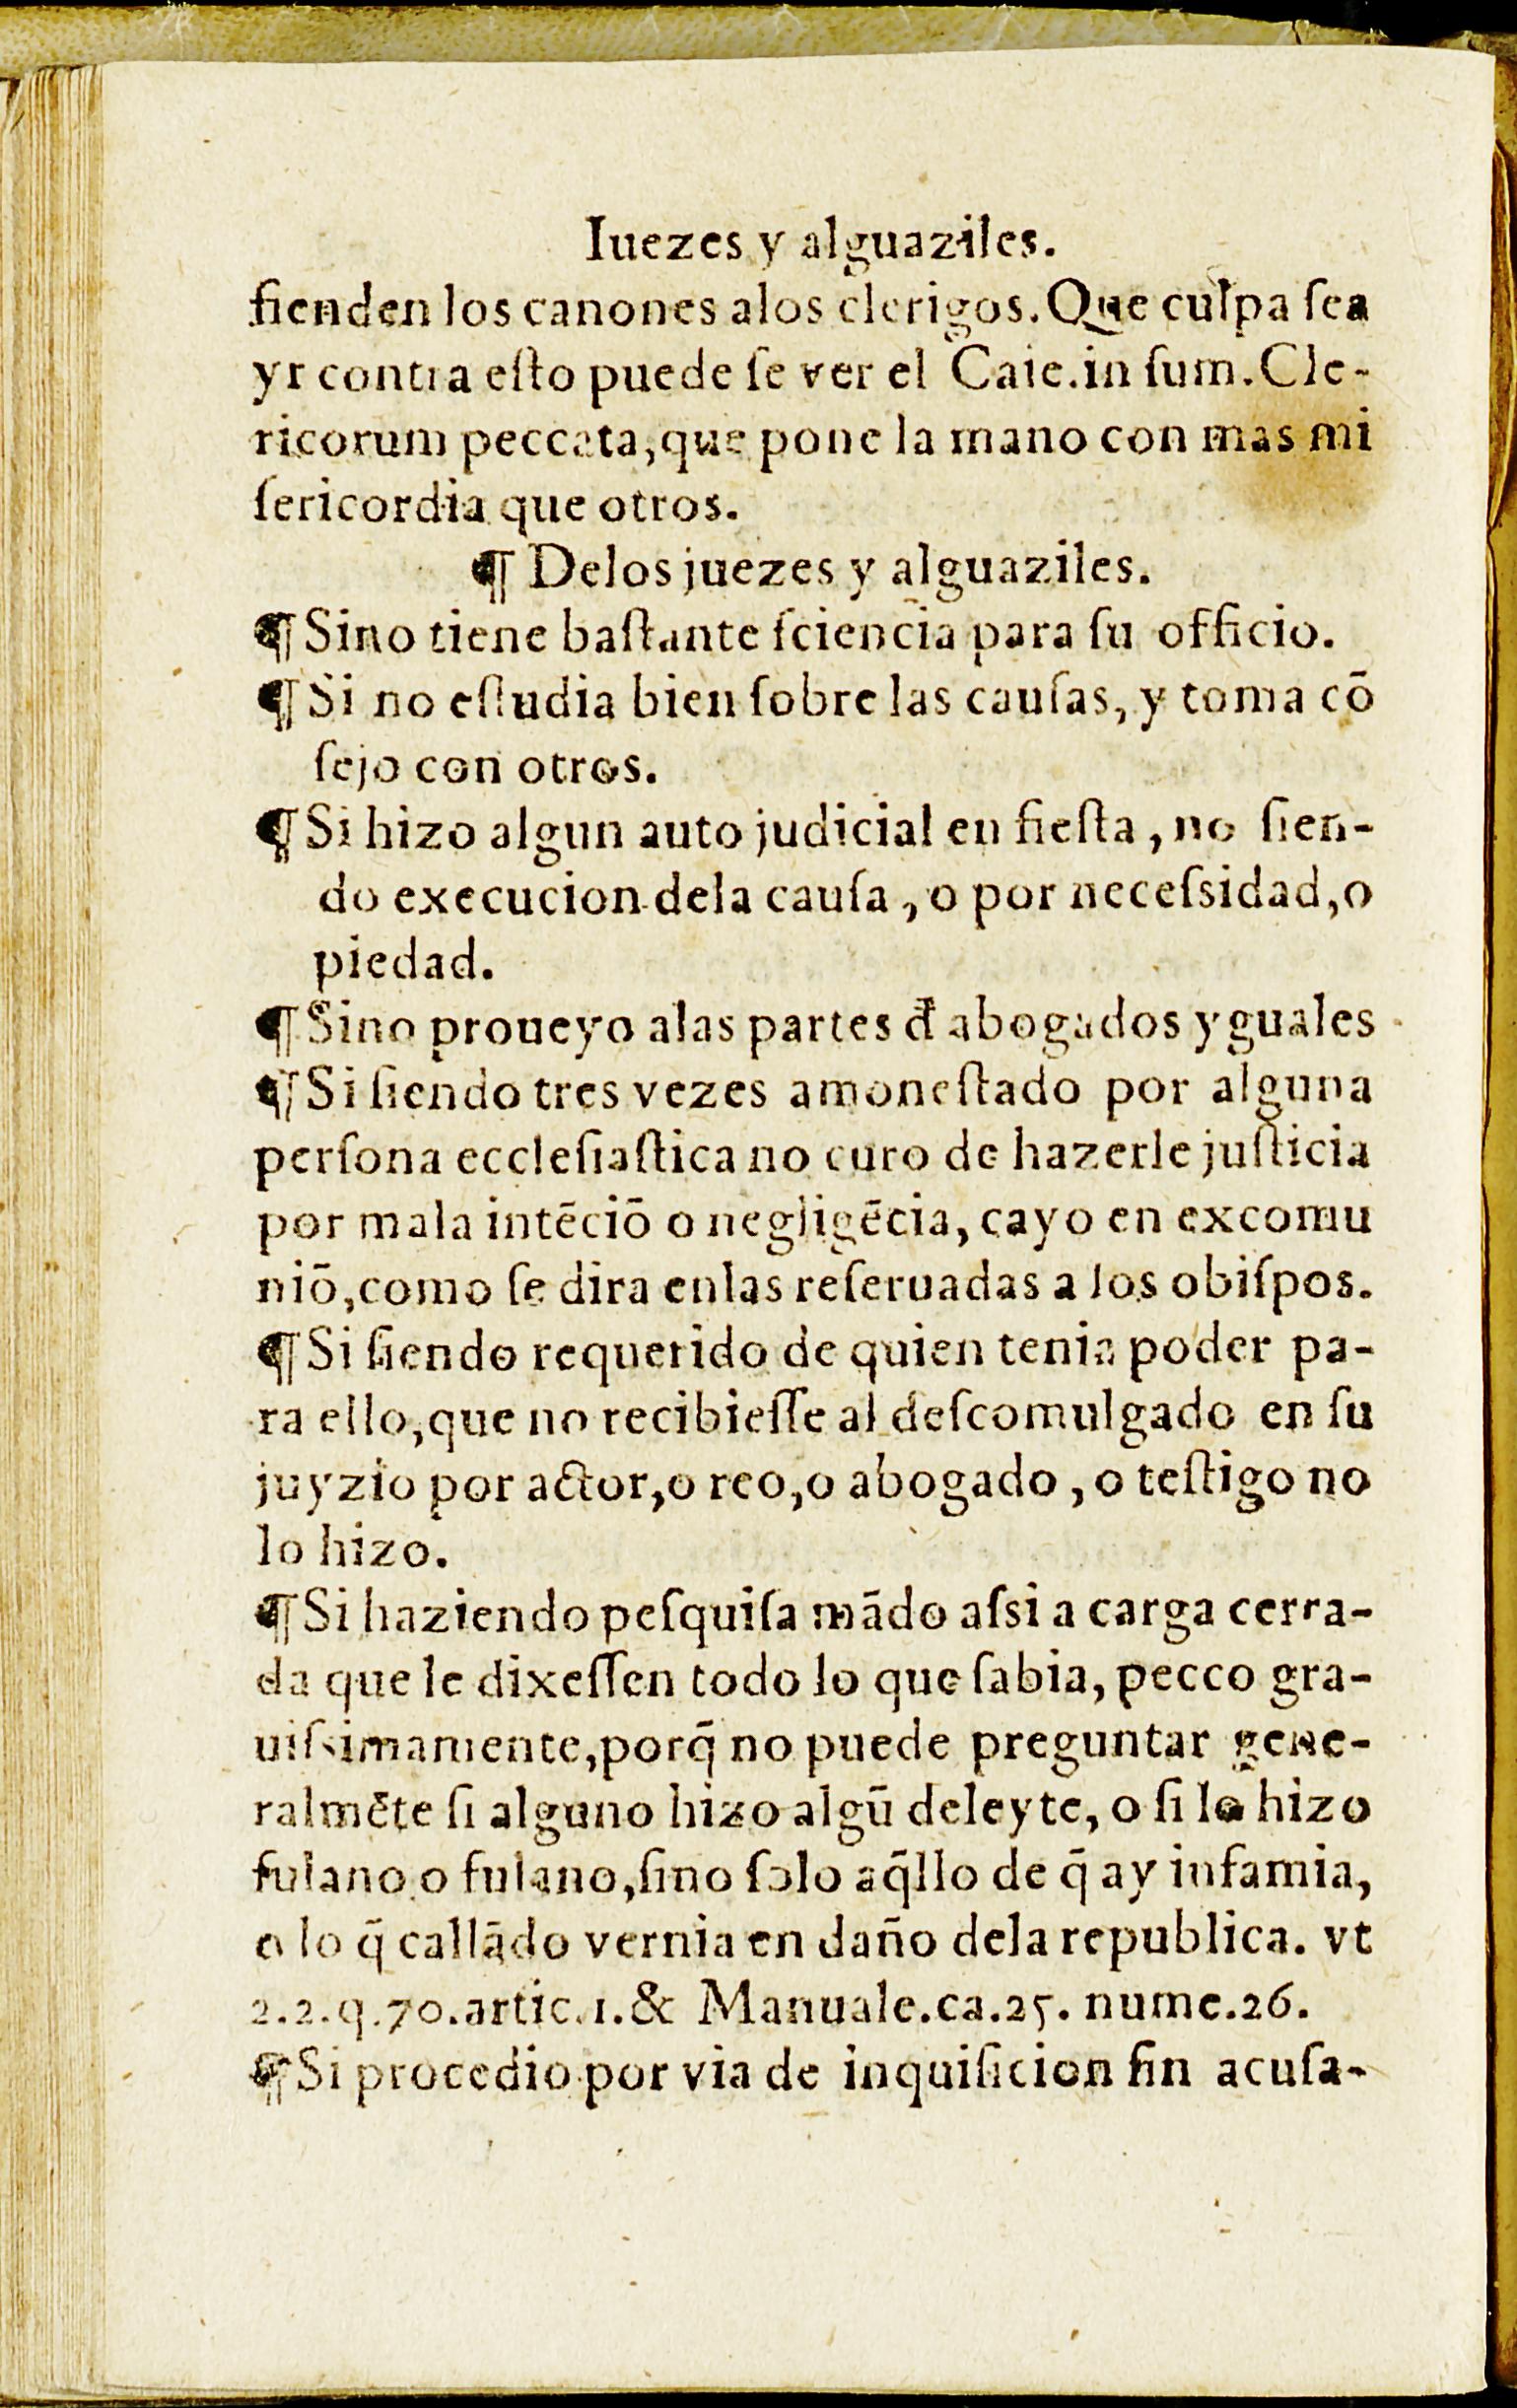 Iuezes y alguaziles.
fienden los canones alos clerigos. Que culpa ſea
yr contra eſto puede ſe ver el Caie.in ſum.Cle-
ricorum peccata, que pone la mano con mas mi
ſericordia que otros.
¶ Delos juezes y alguaziles.
¶ Sino tiene baſtante ſciencia para ſu officio.
¶ Si no eſtudia bien ſobre las cauſas, y toma cõ
ſejo con otros.
¶ Si hizo algun auto judicial en fieſta, no ſien-
do execucion dela cauſa, o por neceſsidad, o
piedad.
¶ Sino proueyo alas partes đ abogados yguales
¶ Si ſiendo tres vezes amoneſtado por alguna
perſona eccleſiaſtica no curo de hazerle juſticia
por mala intẽciõ o negligẽcia, cayo en excomu
niõ, como ſe dira enlas reſeruadas a los obiſpos.
¶ Si ſiendo requerido de quien tenia poder pa-
ra ello, que no recibieſſe al deſcomulgado en ſu
juyzio por actor, o reo, o abogado, o teſtigo no
lo hizo.
¶ Si haziendo peſquiſa mãdo aſsi a carga cerra-
da que le dixeſſen todo lo que ſabia, pecco gra-
uiſsimamente, porq̃ no puede preguntar gene-
ralmẽte ſi alguno hizo algũ deleyte, o ſi lo hizo
fulano o fulano, ſino ſolo aq̃llo de q̃ ay infamia,
o lo q̃ callãdo vernia en daño dela republica. vt
2.2.q.70.artic.1.& Manuale.ca.25. nume.26.
¶ Si procedio por via de inquiſicion ſin acuſa-